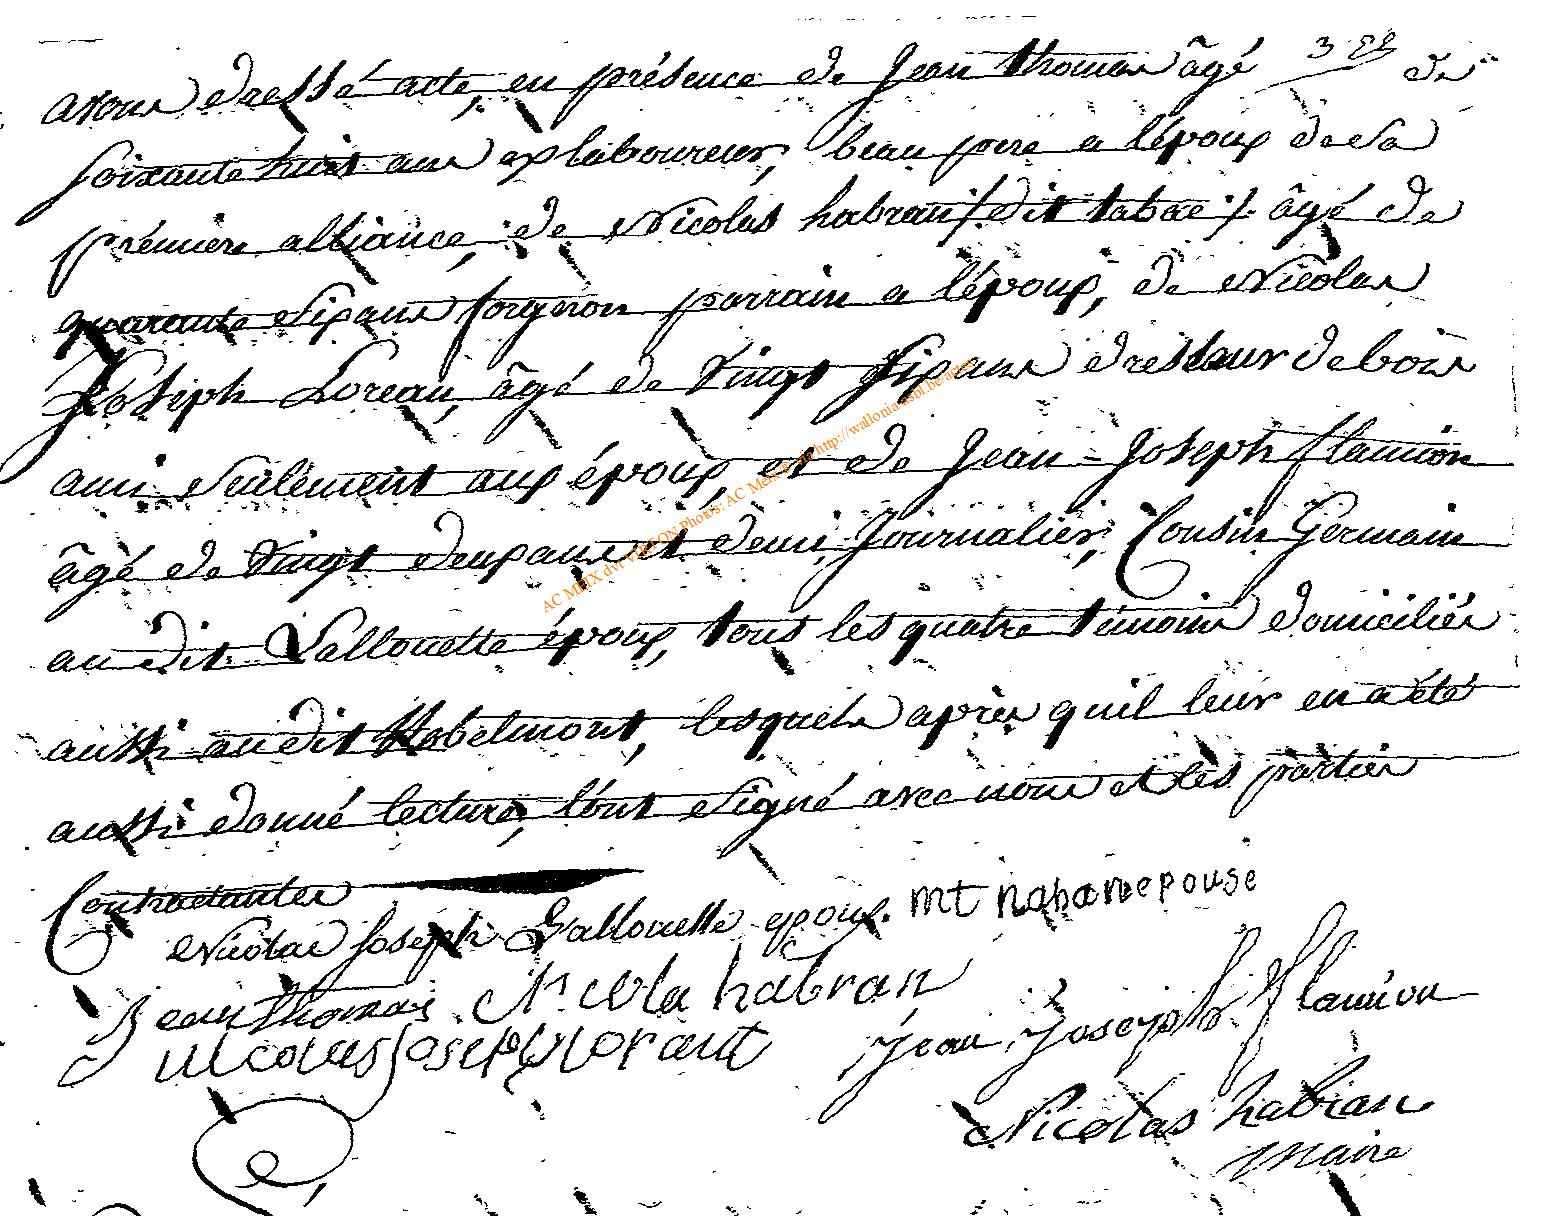 avons dressé acte, en présence de Jean thomas âgé de
soixante huit ans ex laboureur, beau pere a l'époux de sa
prémiere alliance, de Nicolas habran /. dit tabac /. âgé de
quarante six ans forgeron parrain a l'époux, de Nicolas
Joseph Loreau, âgé de vingt six ans dresseur de bois
ami seulément aux époux, et de Jean-Joseph flamion
âgé de vingt deux ans et demi, Journalier, Cousin Germain
au dit Lallouette époux, tous les quatre témoins domiciliés
aussi au dit Robelmont, lesquels après quil leur en a été
aussi donné lecture, l'ont signé avec nous et les parties
Contractantes
Nicolas Joseph Lallouette epoux. mt Nahanepouse
Jean thomas Nicola habran
Jean Joseph flamion
Nicolas Joseph lorant
Nicolas habran
maire
AC MEIX dvt VIRTON Photos: AC Meix http://wallonia-asbl.be/asbl